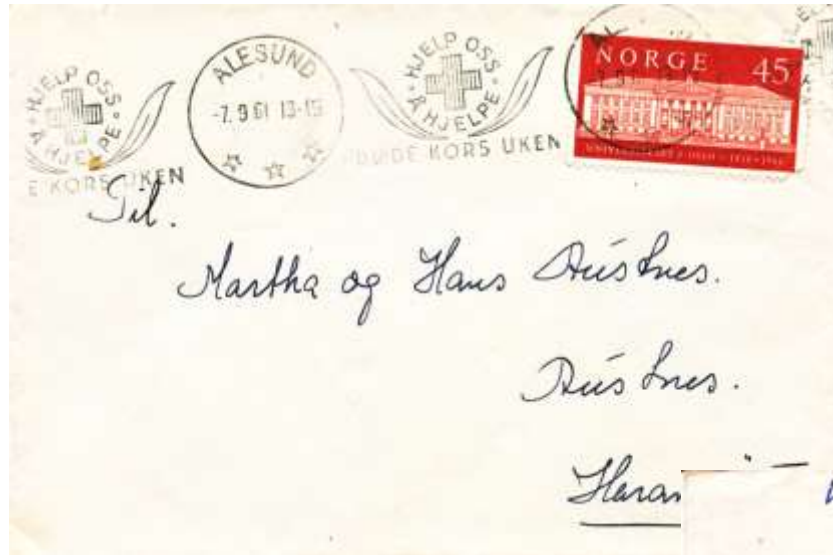 HJELP OSS
Å HJELPE
E KORS UKEN
ÅLESUND
-7.9 61 13-15
HJELP OSS
Å HJELPE
RØDE KORS UKEN
NORGE 45
Til.
Martha og Hans Austnes.
Austnes.